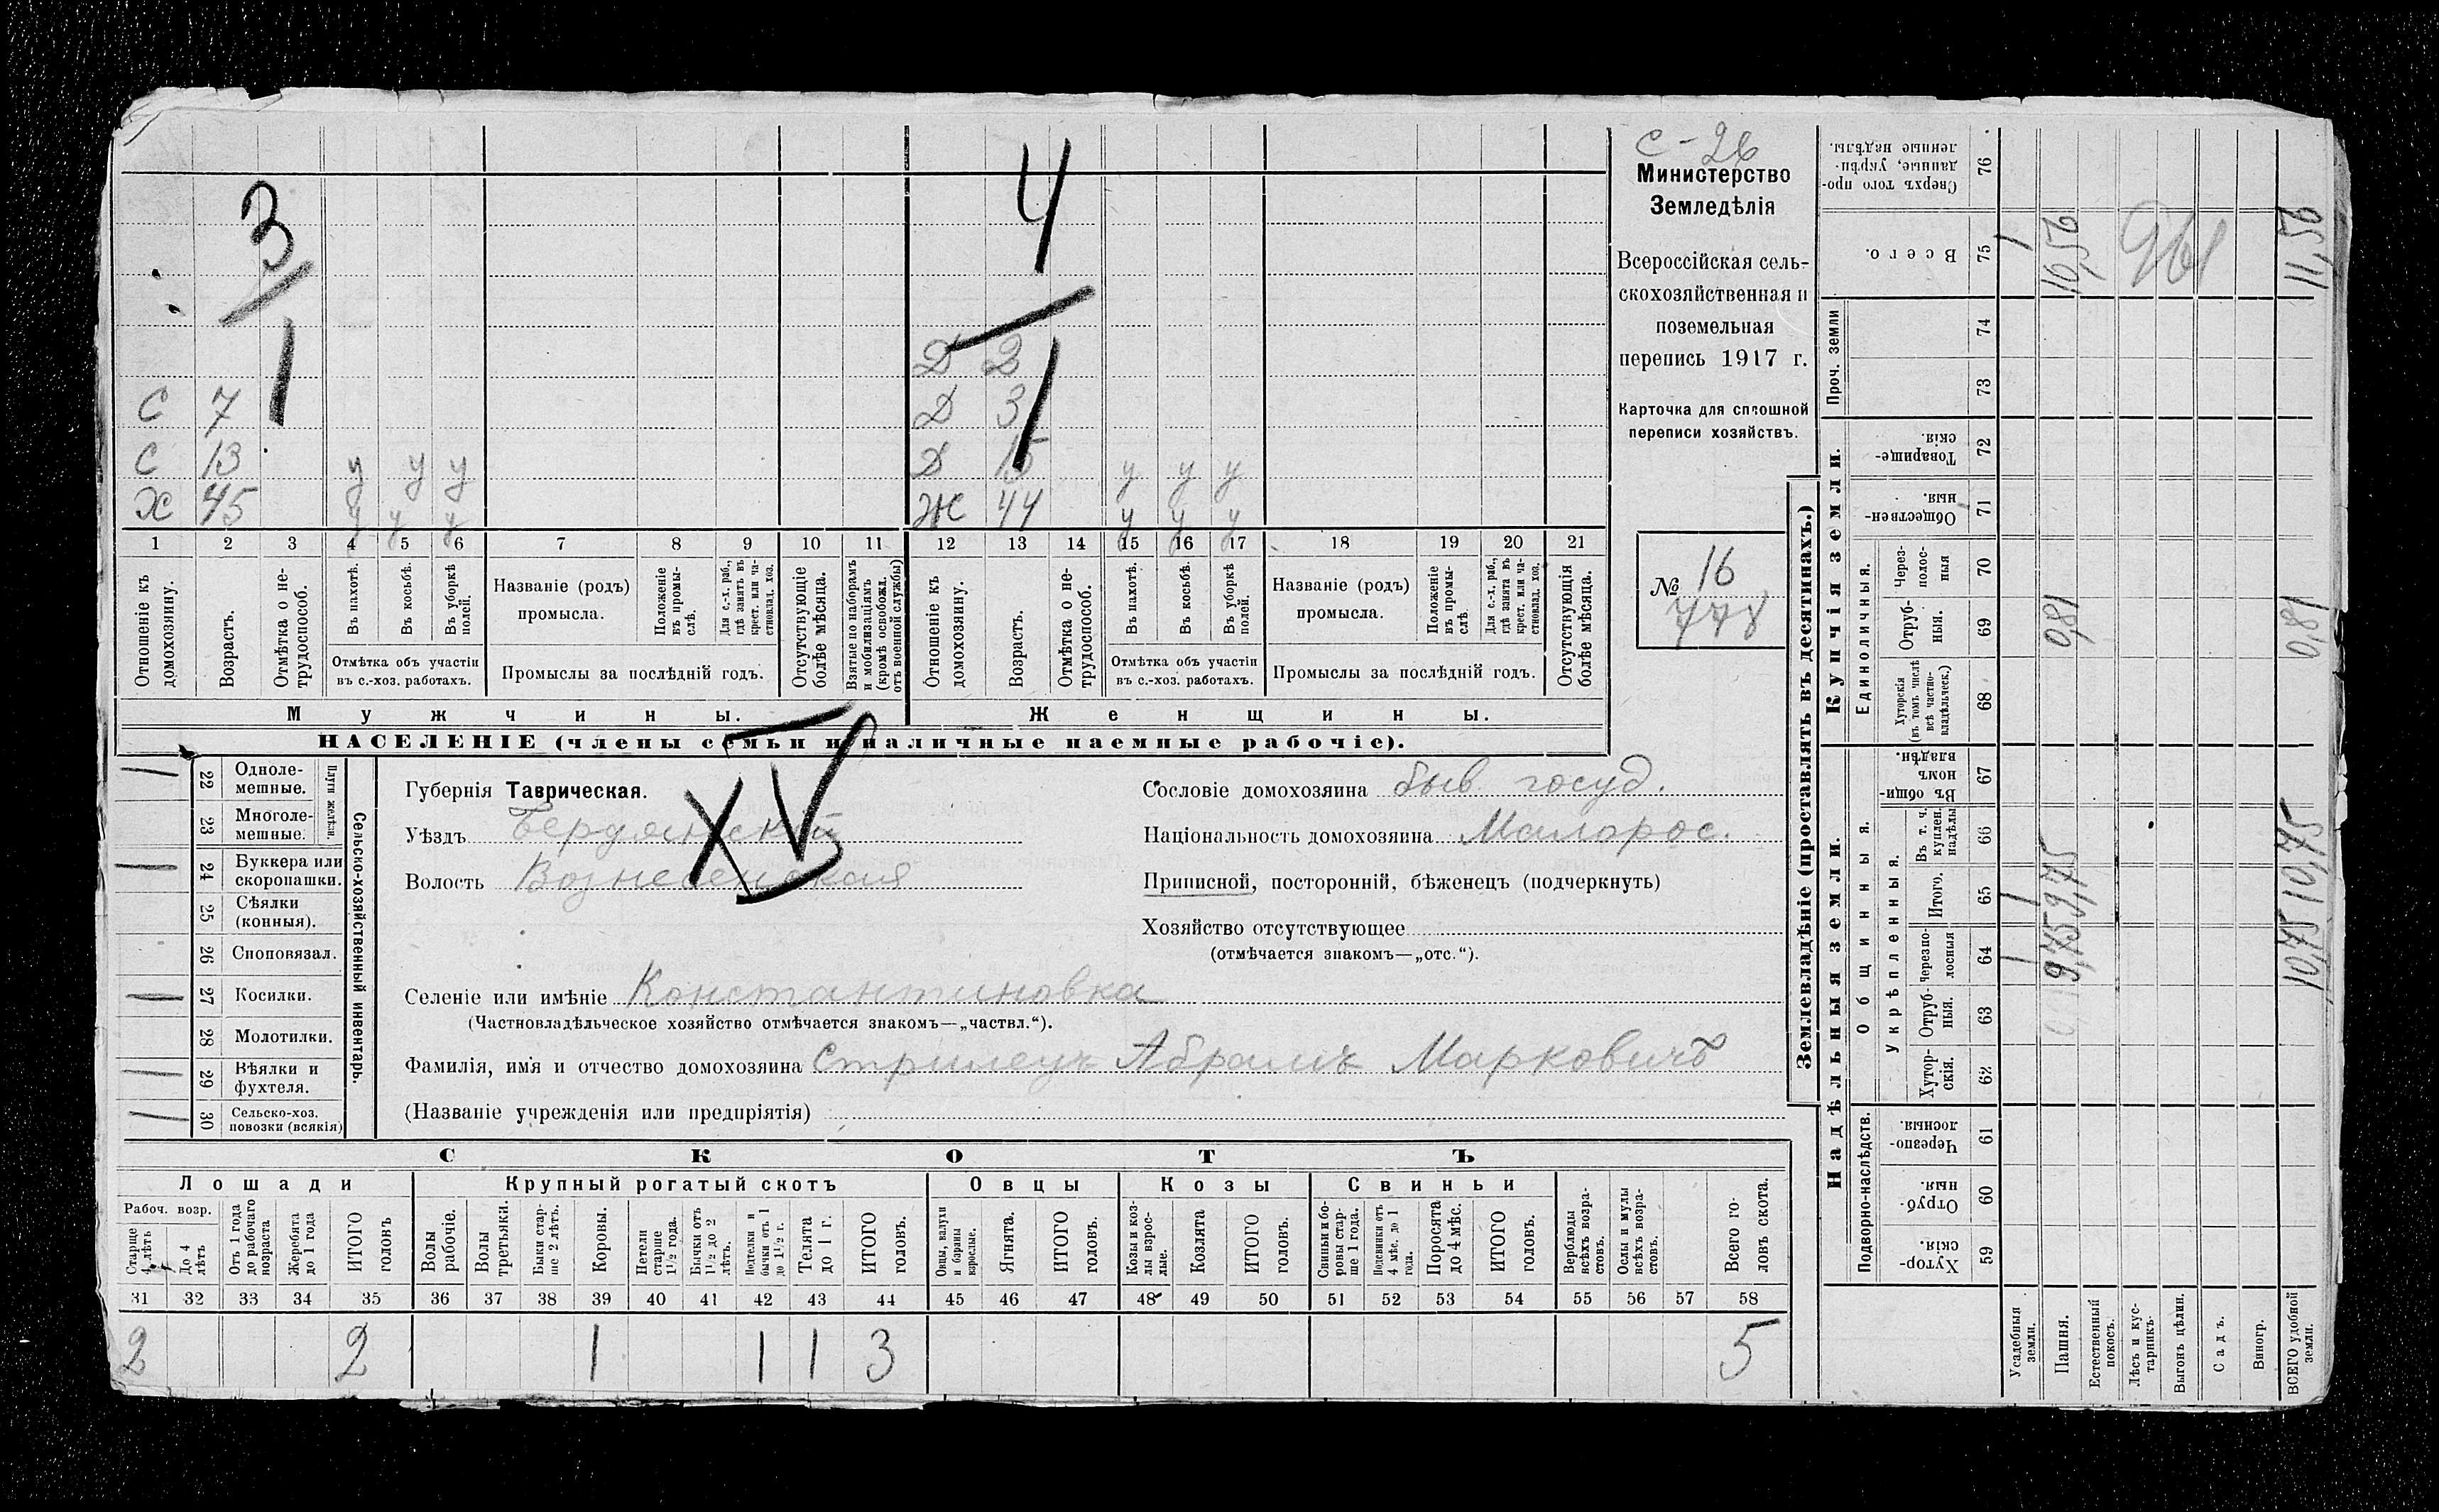 С - 26
Министерство
Земледѣлія
Всероссійская сель-
скохозяйственная и
поземельная
перепись 1917 г.
Карточка для сплошной
переписи хозяйствъ.
№ 16
778
3
1
4
1
Д 2
С 7 Д 3
С 13 у у у Д 15 у у у
Х 45 у у у Ж 44 у у у
1 2 3 4 5 6 7 8 9 10 11 12 13 14 15 16 17 18 19 20 21
Отношеніе къ домохозяину.
Возрастъ.
Отмѣтка о не-трудоспособ.
Въ пахотѣ.
Въ косьбѣ.
Въ уборкѣ полей.
Отмѣтка объ участіи въ с.-хоз. работахъ.
Названіе (родъ) промысла.
Положеніе въ промы-слѣ.
Для с.-х. раб., гдѣ занятъ въ крест. или ча-стновлад. хоз.
Промыслы за послѣдній годъ.
Отсутствующіе болѣе мѣсяца.
Взятые по наборамъ и мобилизаціямъ (кромѣ освобожд. отъ военной службы)
Отношеніе къ домохозяину.
Возрастъ.
Отмѣтка о не-трудоспособ.
Въ пахотѣ.
Въ косьбѣ.
Въ уборкѣ полей.
Отмѣтка объ участіи въ с.-хоз. работахъ.
Названіе (родъ) промысла.
Положеніе въ промы-слѣ
Для с.-х. раб., гдѣ занята въ крест. или ча-стновлад. хоз.
Промыслы за послѣдній годъ.
Отсутствующія болѣе мѣсяца.
Мужчины. Женщины.
НАСЕЛЕНІЕ (члены семьи и наличные наемные рабочіе).
XV
Сельско-хозяйственный инвентарь.
Плуги желѣзн.
22 Одноле-мешные.
23 Многоле-мешные.
24 Буккера или скоропашки.
25 Сѣялки (конныя).
26 Сноповязал.
27 Косилки.
28 Молотилки.
29 Вѣялки и фухтеля.
30 Сельско-хоз. повозки (всякія)
Губернія Таврическая.
Уѣздъ Бердянскій
Волость Вознесенская
Сословіе домохозяина быв госуд.
Національность домохозяина Малорос.
Приписной, посторонній, бѣженецъ (подчеркнуть)
Хозяйство отсутствующее
(отмѣчается знакомъ—„отс.“).
Селеніе или имѣніе Константиновка
(Частновладѣльческое хозяйство отмѣчается знакомъ—„частвл.“).
Фамилія, имя и отчество домохозяина Стрилецъ Абрамъ Марковичъ
(Названіе учрежденія или предпріятія)
СКОТЪ
Лошади Крупный рогатый скотъ Овцы Козы Свиньи
Рабоч. возр.
Старше 4 лѣтъ
До 4 лѣтъ
Отъ 1 года до рабочаго возраста
Жеребята до 1 года
ИТОГО головъ
Волы рабочіе.
Волы третьяки.
Быки стар-ше 2 лѣтъ.
Коровы.
Нетели старше 1½ года.
Бычки отъ 1½ до 2 лѣтъ.
Нетелки и бычки отъ 1 до 1½ г.
Телята до 1 г.
ИТОГО головъ.
Овцы, валухи и бараны взрослые.
Ягнята.
ИТОГО головъ.
Козы и коз-лы взрос-лые.
Козлята
ИТОГО головъ.
Свиньи и бо-ровы стар-ше 1 года.
Подсвинки отъ 4 мѣс. до 1 года.
Поросята до 4 мѣс.
ИТОГО головъ.
Верблюды всѣхъ возра-стовъ.
Ослы и мулы всѣхъ возра-стовъ.
Всего го-ловъ скота.
31 32 33 34 35 36 37 38 39 40 41 42 43 44 45 46 47 48 49 50 51 52 53 54 55 56 57 58
2 2 1 1 1 3 5
Землевладѣніе (проставлять въ десятинахъ.)
Надѣльныя земли. Купчія земли. Проч. земли
Подворно-наслѣдств.
Общинныя.
Укрѣпленныя.
Единоличныя.
59 Хутор-скія.
60 Отруб-ныя.
61 Черезпо-лосныя.
62 Хутор-скія.
63 Отруб-ныя.
64 Черезпо-лосныя
65 Итого.
66 Въ т. ч. куплен. надѣлы
67 Въ общи-номъ владѣн.
68 Хуторскія (въ томъ числѣ всѣ частно-владѣльческ.)
69 Отруб-ныя.
70 Через-полос-ныя
71 Обществен-ныя.
72 Товарище-скія.
73
74
75 Всего.
76 Сверхъ того про-данные, укрѣп-ленные надѣлы.
Усадебныя земли. 1 1 1
Пашня. 9,75 9,75 0,81 10,56
Естественный покосъ.
Лѣсъ и кус-тарникъ.
961
Выгонъ цѣлин.
Садъ.
Виногр.
ВСЕГО удобной земли. 10,75 10,75 0,81 11,56